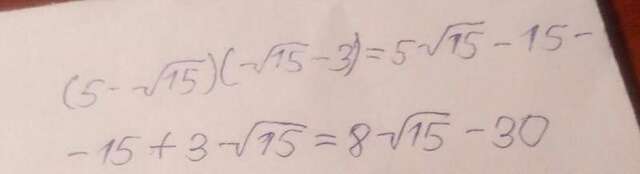 (5-√15)(√15-3)=5√15-15-
-15+3√15=8√15-30